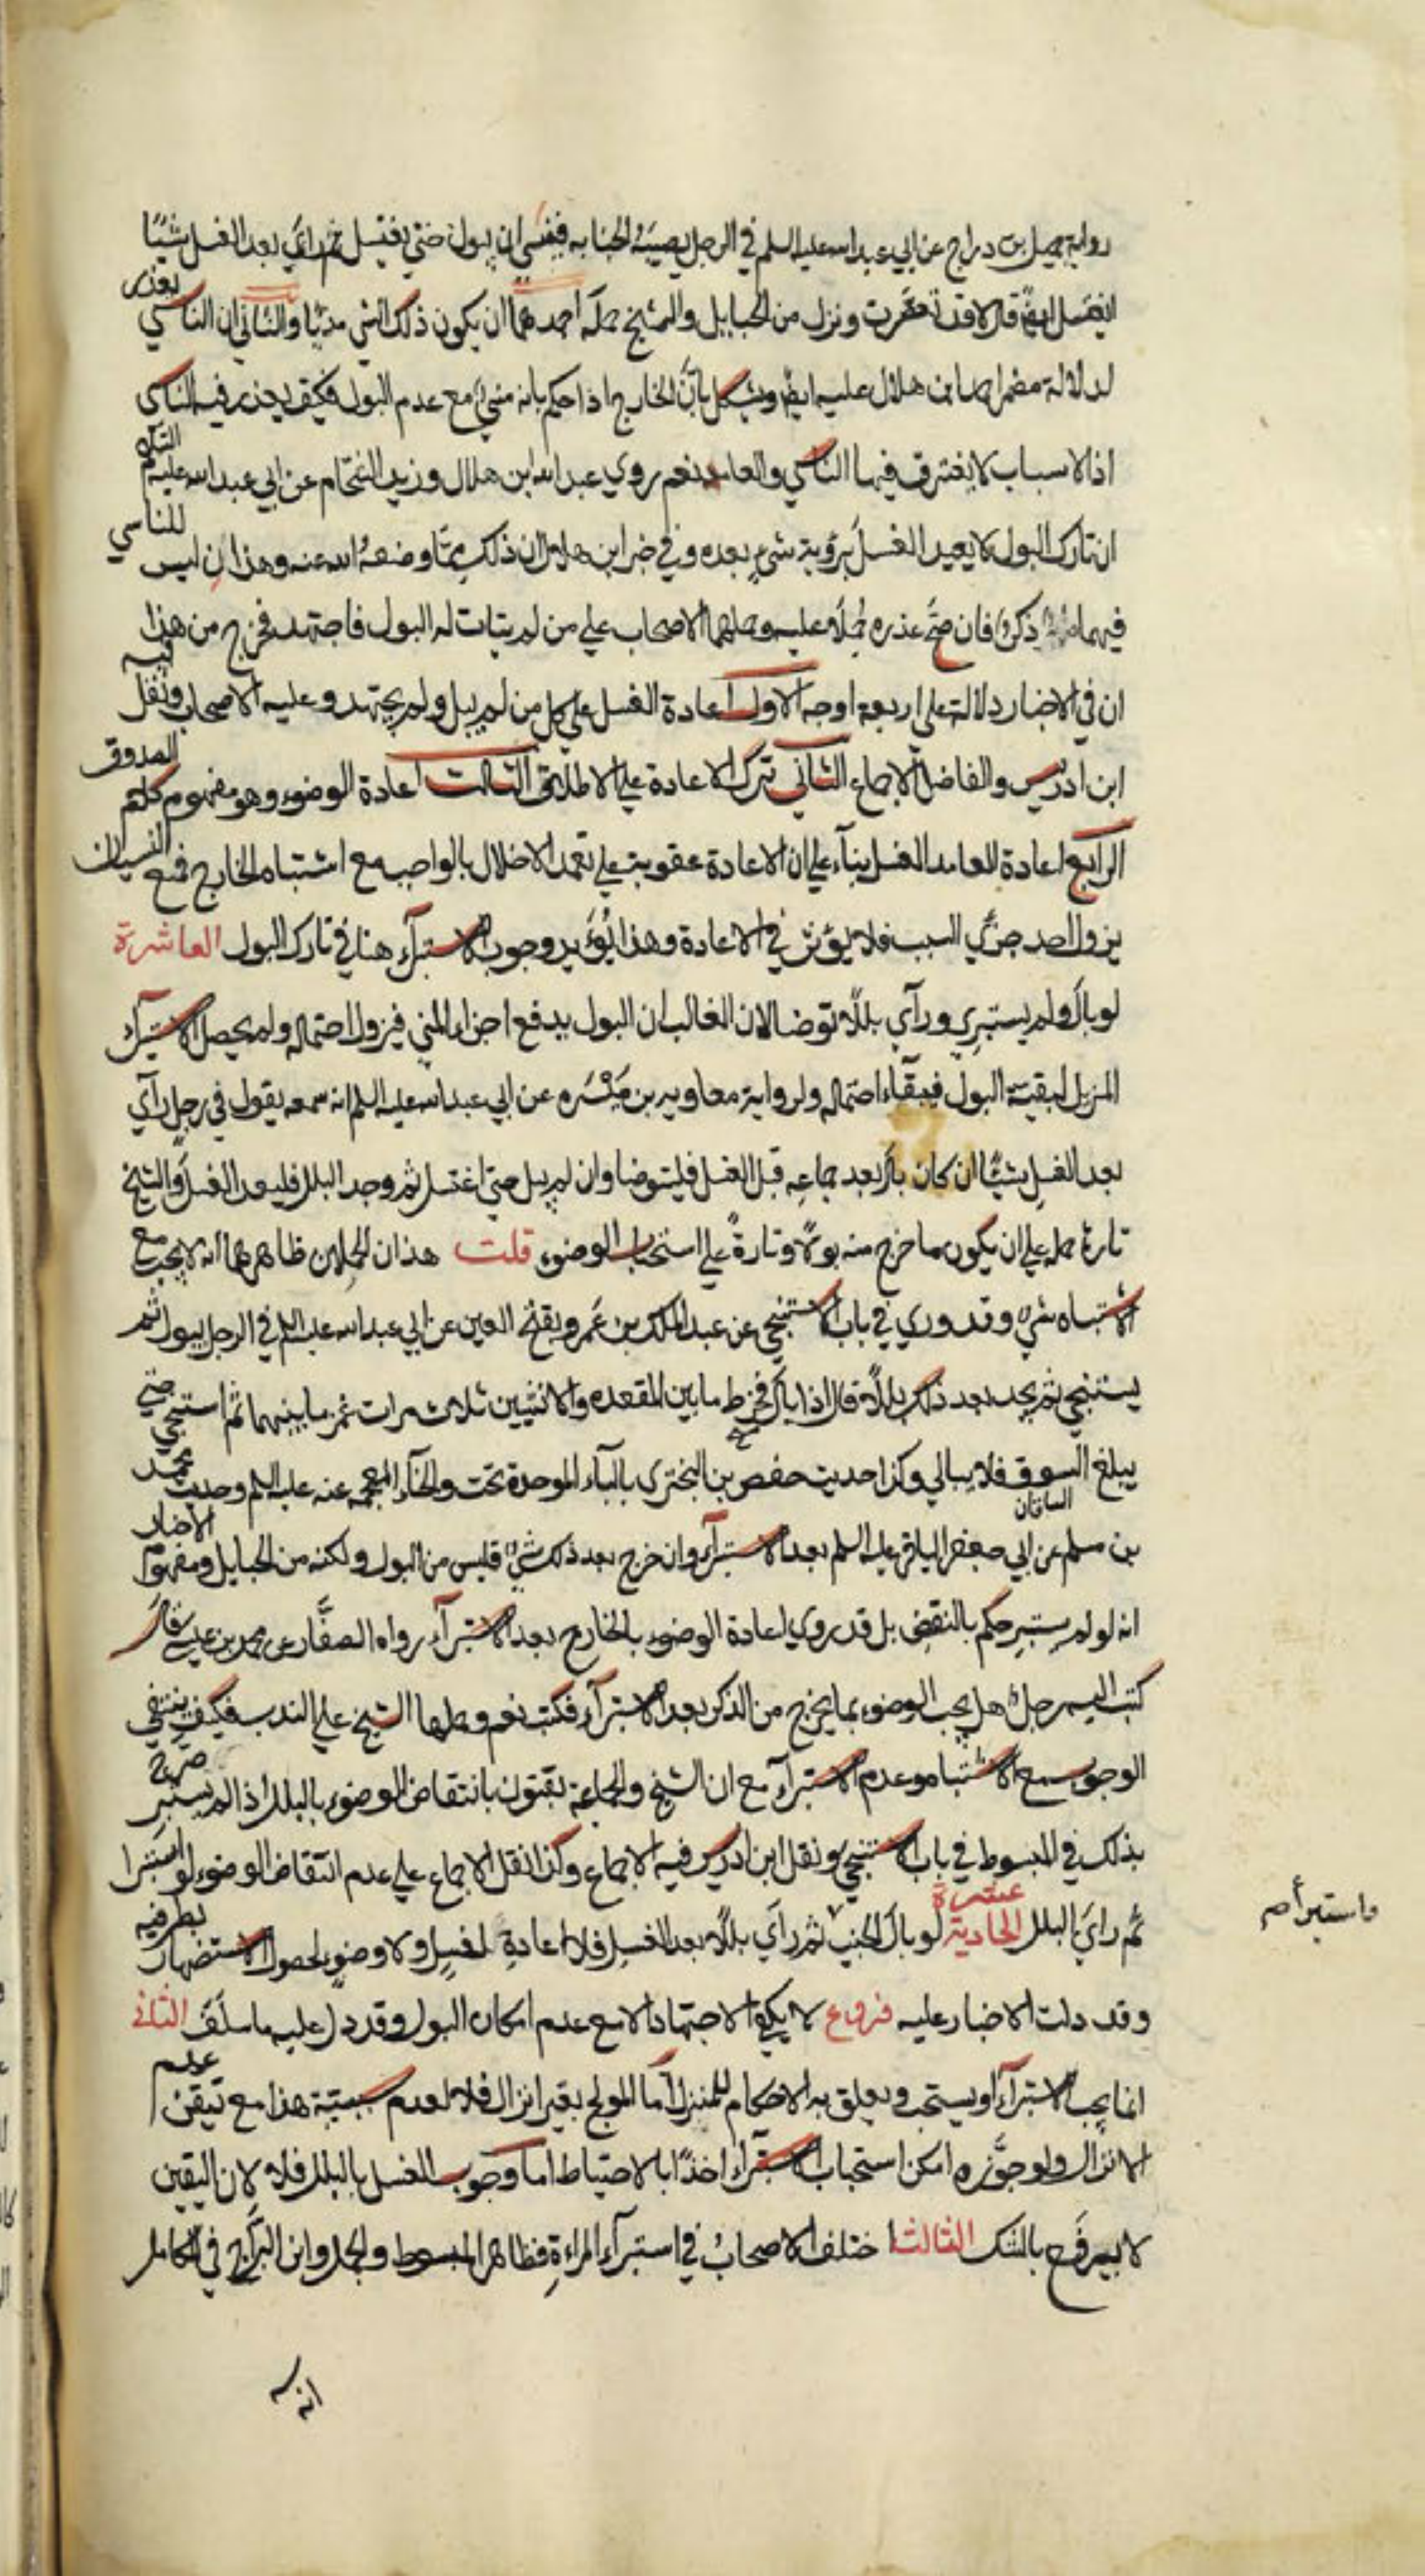 رواية جميل بن دراج عن ابي عبد الله عليه السلم في الرجل يصيبه الجنابه فينسى ان يبول حتى يغتسل ثم رأي بعد الغسل شيئا
ايغتسل ايضا قال لا قد تعصرت ونزل من الحبايل والشيخ حمله احدهما ان يكون ذلك الشي مذيا والثاني ان الناسي يعذر
لدلالة مضمر احمد بن هلال عليه ايضا ويشكل بان الخارج اذا حكم بانه مني مع عدم البول فكيف يعذر فيه الناسي
اذ الاسباب لا يفترق فيها الناسي والعامد نعم روي عبد الله ابن هلال وزيد الشحام عن ابي عبد الله عليه م
ان تارك البول لا يعيد الغسل برؤية شيء بعده وفي خبر ابن هلال ان ذلك ممّا وضعه الله عنه وهذان ليس للناسي
فيهما ذكر فان صحّ عذره حُملا عليه وحملهما الاصحاب علي من لم يتات له البول فاجتهد فخرج من هذا
ان في الاخبار دلالة على اربعة اوجه الاول اعادة الغسل علي كل من لم يبل ولم يجتهد وعليه الاصحاب ونقل فيه
ابن ادريس والفاضل الاجماع الثاني ترك الاعادة علي الاطلاق الثالث اعادة الوضوء وهو مفهوم كلام الصدوق
الرابع اعادة العامد الغسل بناء علي ان الاعادة عقوبة علي تعمد الاخلال بالواجب مع اشتباه الخارج فمع النسيان
يزول احد جزئي السبب فلا يؤثر في الاعادة وهذا يُؤيد وجوب الاستبرآء هنا في تارك البول العاشرة
لو بال ولم يستبري ورآي بللا توضا لان الغالب ان البول يدفع اجزاء المني فيزول احتماله ولم يحصل الاستبرآء
المزيل لبقية البول فيبقاء احتماله ولرواية معاويه بن مَيْسَره عن ابي عبد الله عليه السلم انه سمعه يقول في رجل رآي
بعد الغسل شيئا ان كان بال بعد جماعه قبل الغسل فليتوضا وان لم يبل حتى اغتسل ثم وجد البلل فليعد الغسل والشيخ
تارة حمله علي ان يكون ما خرج منه بولا وتارة علي استحباب الوضوء قلت هذان الحملان ظاهرهما انه لا يجب مع
الاشتباه شيء وقد روي في باب الاستنجي عن عبد الملك بن عَمرو بفتح العين عن ابي عبد الله عليه السلم في الرجل يبول ثم
يستنجي ثم يجد بعد ذلك بللا قال اذا بال فخرط ما بين المقعده والانثيين ثلاث مرات غمز ما بينهما ثم استنجي حتي
يبلغ السوق فلا يبالي وكذا حديث حفص بن البختري بالبآء الموحدة تحت والخآء المعجمه عنه عليه السلم وحديث محمد
الساقان
بن مسلم عن ابي جعفر الباقر عليه السلم بعد الاستبرآء وان خرج بعد ذلك شيء فليس من البول ولكنه من الحبايل ومفهوم الاخبار
انه لو لم يستبر حكم بالنقض بل قد روي اعادة الوضوء بالخارج بعد الاستبرآء رواه الصفّار عن محمد بن عيسي قال
كتب اليه رجل هل يجب الوضوء بما يخرج من الذكر بعد الاستبرآء فكتب نعم وحملها الشيخ علي الندب فكيف ينتفي
الوجوب مع الاشتباه وعدم الاستبرآء مع ان الشيخ والجماعة يفتون بانتقاض الوضوء بالبلل اذا لم يستبر صرح
بذلك في المبسوط في باب الاستنجي ونقل ابن ادريس فيه الاجماع وكذا نقل الاجماع علي عدم انتقاض الوضوء لو استبرا
ثم راي البلل الحادية عشرة لو بال الجنب ثم رآي بللا بعد الغسل فلا اعادة لغسل ولا وضوء لحصول الاستظهار بطرفيه
واستبرأ صح
وقد دلت الاخبار عليه فروع لا يكفي الاجتهاد الا مع عدم امكان البول وقد دل عليه ما سلف الثاني
انما يجب الاستبرآء او يستحب ويعلق به الاحكام للمنزل امّا المولج بغير انزال فلا لعدم سببيّة هذا مع تيقن عدم
الانزال ولو جوّزه امكن استحباب الاستبرآء اخذا بالاحتياط اما وجوب الغسل بالبلل فلا لان اليقين
لا يرفع بالشك الثالث اختلف الاصحاب في استبرآء المراءة فظاهر المبسوط والجمل وابن البرّاج في الكامل
انه لا